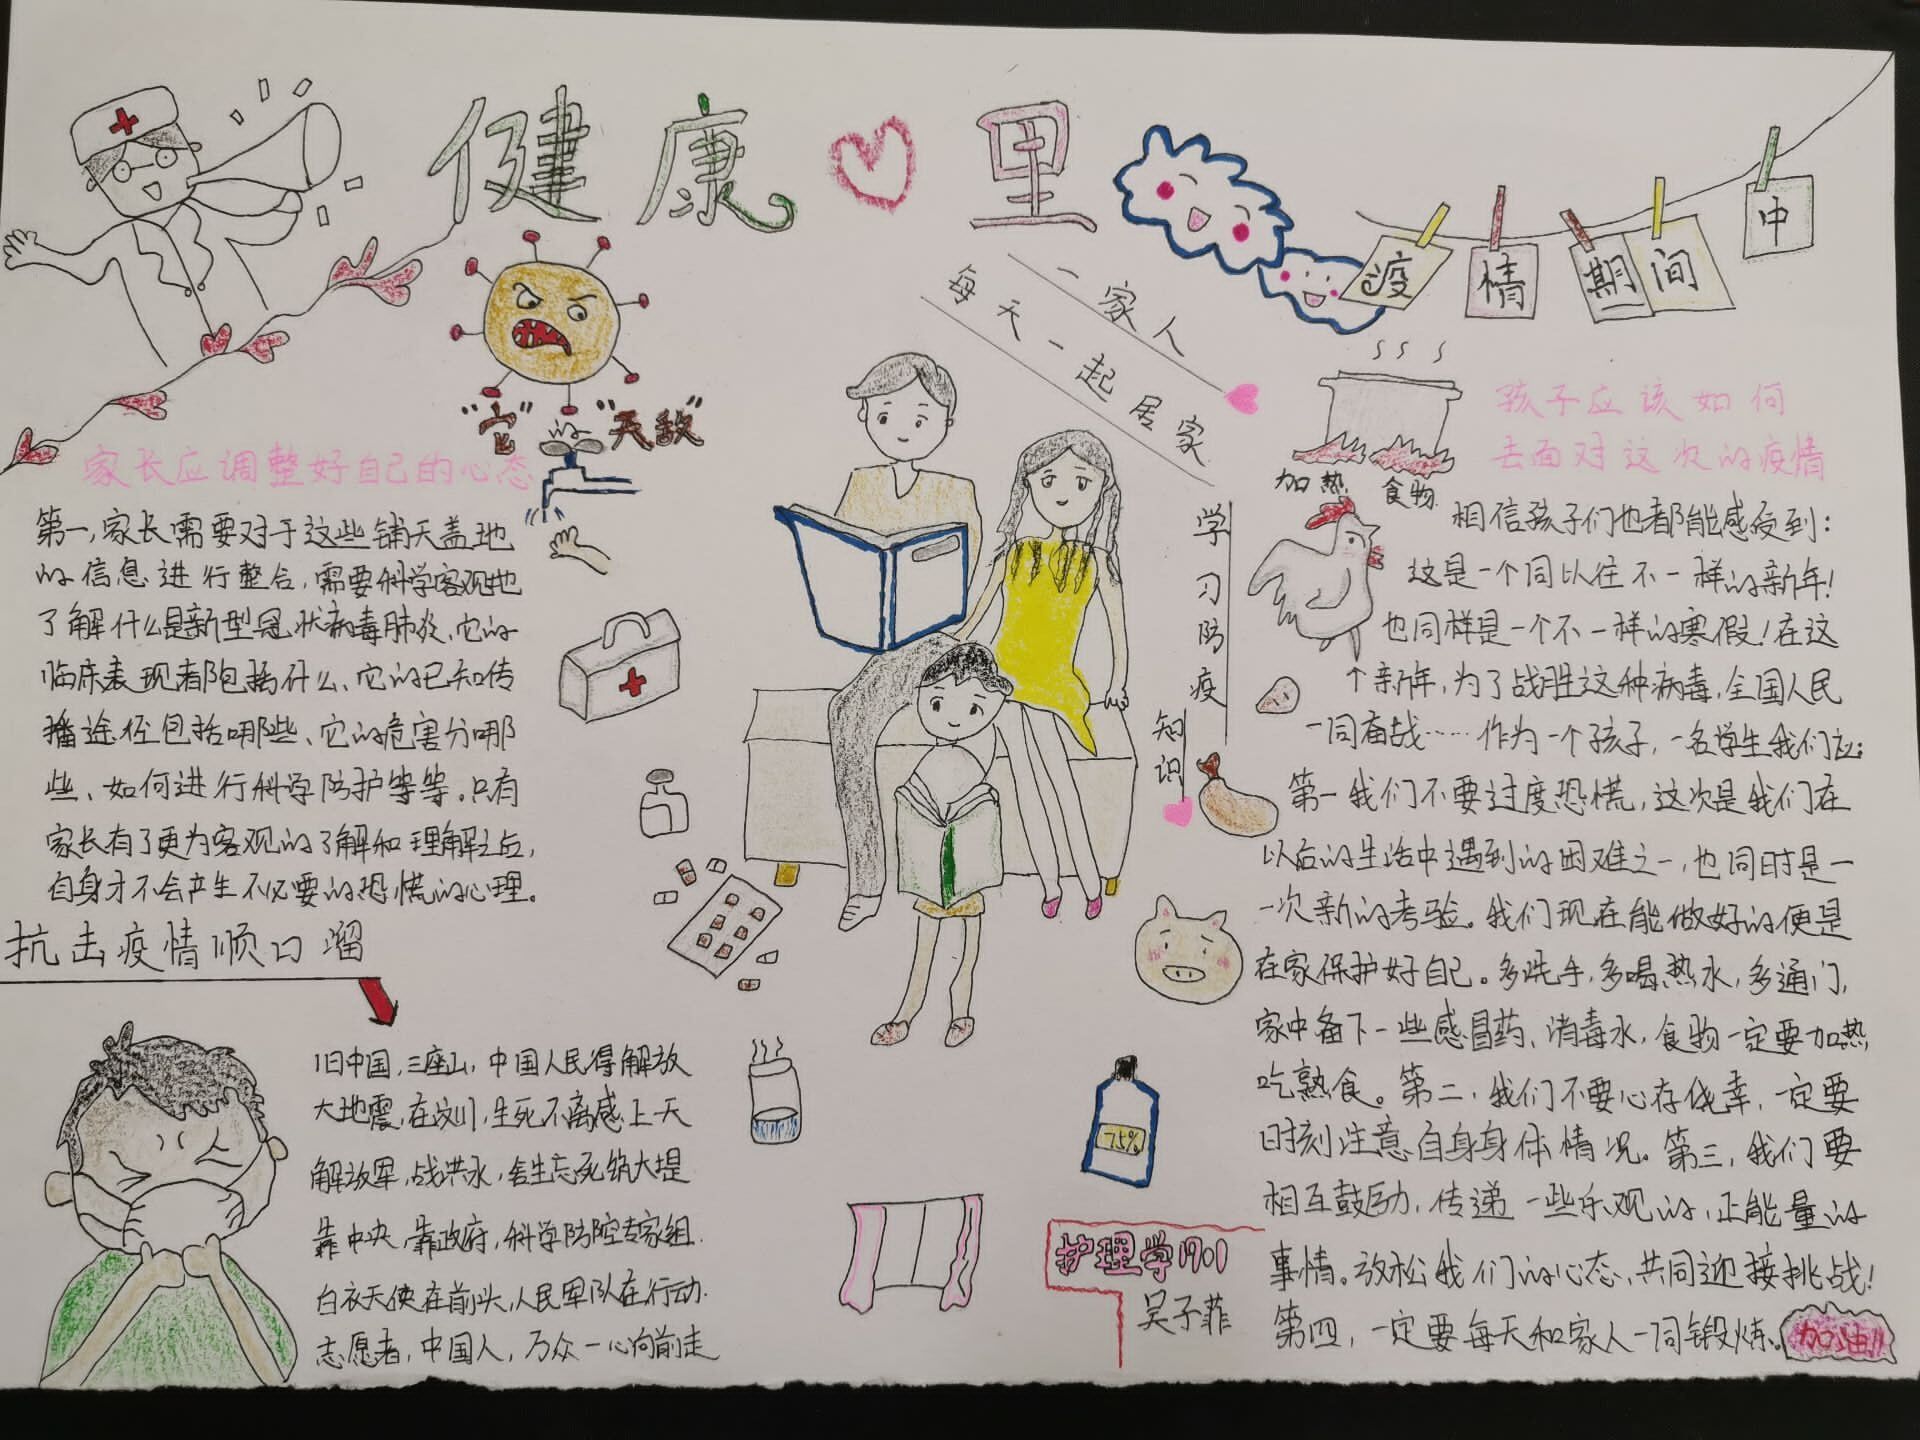 健康里
疫情期间中
一家人
每天一起居家
学习防疫
知识
"它"的"天敌"
加热 食物
家长应调整好自己的心态
第一,家长需要对于这些铺天盖地
的信息进行整合,需要科学客观地
了解什么是新型冠状病毒肺炎、它的
临床表现都包括什么、它的已知传
播途径包括哪些、它的危害分哪
些、如何进行科学防护等等。只有
家长有了更为客观的了解和理解之后,
自身才不会产生不必要的恐慌的心理。
抗击疫情顺口溜
旧中国,三座山,中国人民得解放
大地震,在汶川,生死不离感上天
解放军,战洪水,舍生忘死筑大堤
靠中央,靠政府,科学防控专家组.
白衣天使在前头,人民军队在行动.
志愿者,中国人,万众一心向前走
孩子应该如何
去面对这次的疫情
相信孩子们也都能感受到:
这是一个同以往不一样的新年!
也同样是一个不一样的寒假!在这
个新年,为了战胜这种病毒,全国人民
一同奋战……作为一个孩子,一名学生我们应:
第一我们不要过度恐慌,这次是我们在
以后的生活中遇到的困难之一,也同时是一
一次新的考验。我们现在能做好的便是
在家保护好自己。多洗手,多喝热水,多通门,
家中备下一些感冒药、消毒水,食物一定要加热
吃熟食。第二,我们不要心存侥幸,一定要
时刻注意自身身体情况。第三,我们要
相互鼓励,传递一些乐观的,正能量的
事情。放松我们的心态,共同迎接挑战!
第四,一定要每天和家人一同锻炼。
加油!!
75%
护理学1901
吴子菲